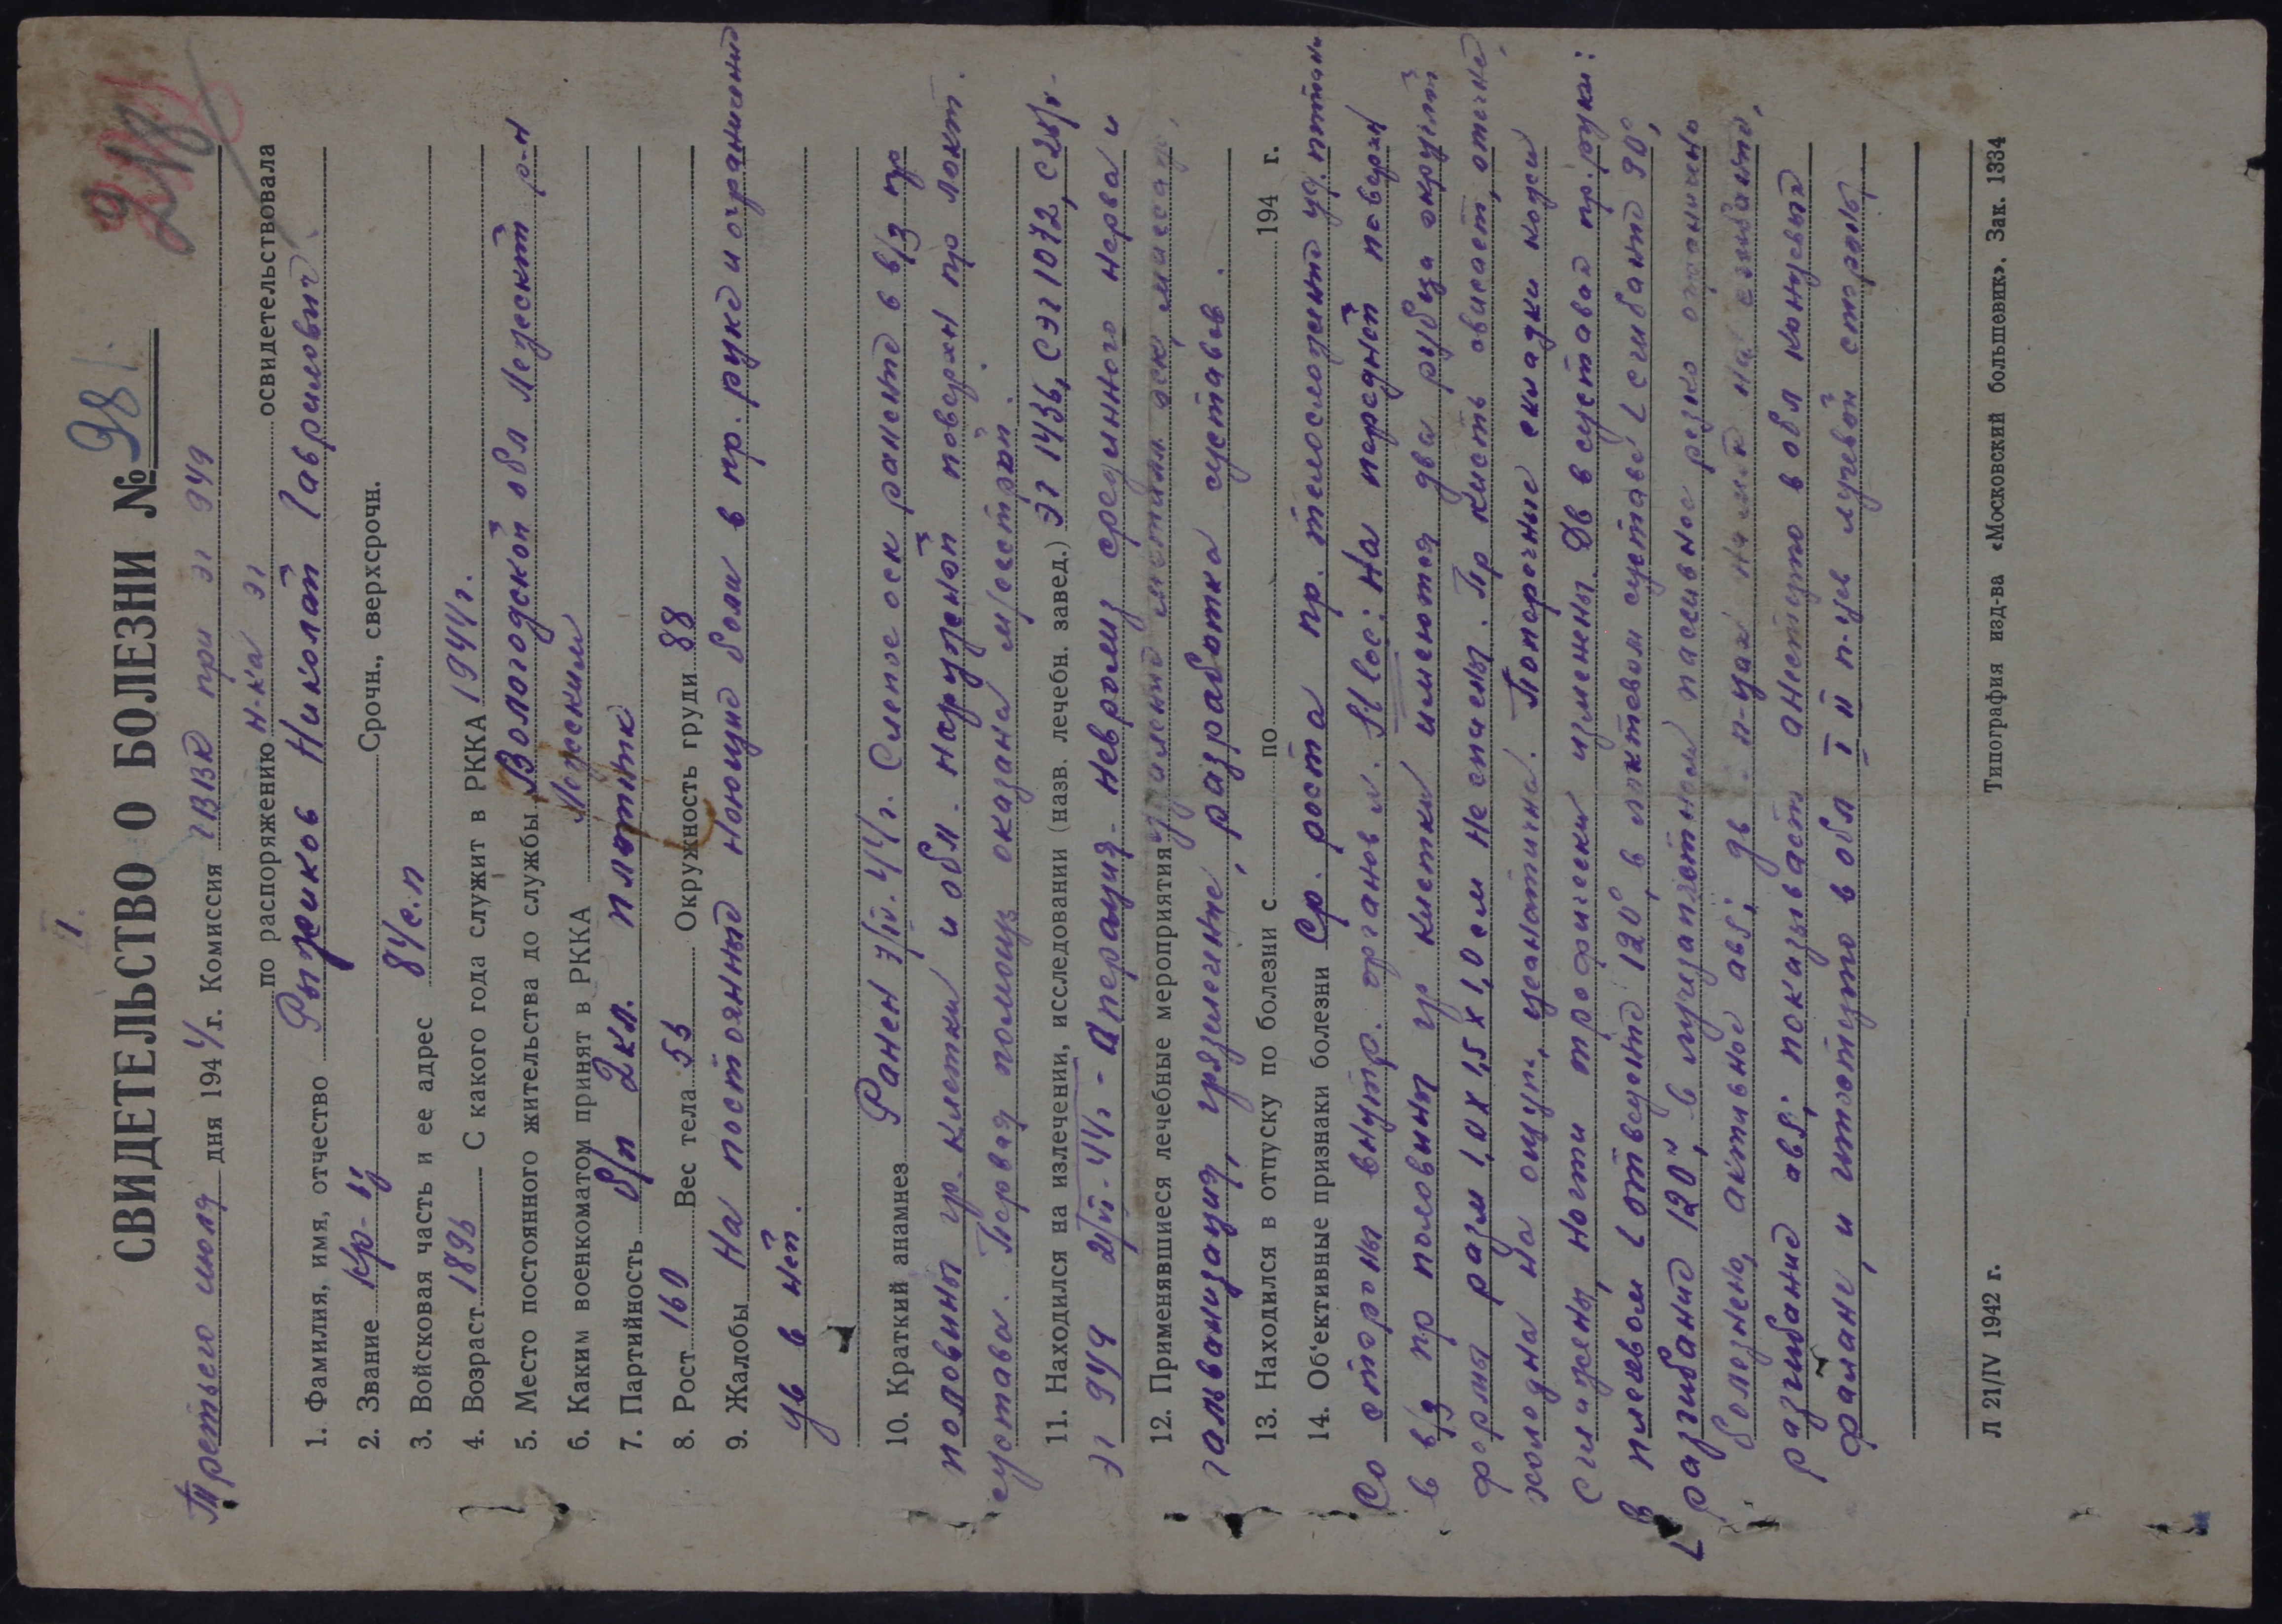 I.
СВИДЕТЕЛЬСТВО О БОЛЕЗНИ № 98
Третьего июля дня 1944 г. Комиссия ГВВК при ЭГ 949
по распоряжению н-ка ЭГ освидетельствовала
1. Фамилия, имя, отчество Рыжиков Николай Гаврилович
2. Звание кр-ц Срочн., сверхсрочн.
3. Войсковая часть и ее адрес 84 с.п
4. Возраст 1896 С какого года служит в РККА 1944 г.
5. Место постоянного жительства до службы Вологодской обл р-н
6. Каким военкоматом принят в РККА
7. Партийность б/п 2 кл. плотник
8. Рост 160 Вес тела 56 Окружность груди 88
9. Жалобы На постоянные ноющие боли в пр. руке и ограничение
дв в ней.
10. Краткий анамнез Ранен 44 г. Слепое оск ранение в в/3 пр
половины гр. клетки и обл. наружной поверхн пр локт.
сустава. Первая помощь оказана
11. Находился на излечении, исследовании (назв. лечебн. завед.) ЭГ 1436, СЭГ 1072,
ЭГ 949 44 г - Операция - невролиз срединного нерва и
12. Применявшиеся лечебные мероприятия удаление металл. оск, массаж,
гальванизация, грязелечение, разработка суставов.
13. Находился в отпуску по болезни с по 194 г.
14. Об'ективные признаки болезни Ср. роста пр. телосложения уд. питания
Со стороны внутр. органов N. St loc: На передней поверхн
в в/3 пр половины гр клетки имеются два рубца округлой
формы разм 1,0 х 1,5 х 1,0 см не спаяны. Пр кисть свисает, отечна,
холодна на ощупь, цианотична. Поперечные складки кожи
сглажены, ногти трофически изменены. Дв в суставах пр. руки:
в плечевом L отведения 120°, в локтевом суставе L сгибания 90°,
L разгибания 120°, в лучезапястном пассивное резко ограничено
болезнено, активное abs; дв. п-цах
разгибание abs; показывает анестезию в обл концевых
фаланг, и гипостезию в обл I II п-цев лучевой стороны
Л 21/IV 1942 г. Типография изд-ва «Московский большевик». Зак. 1334